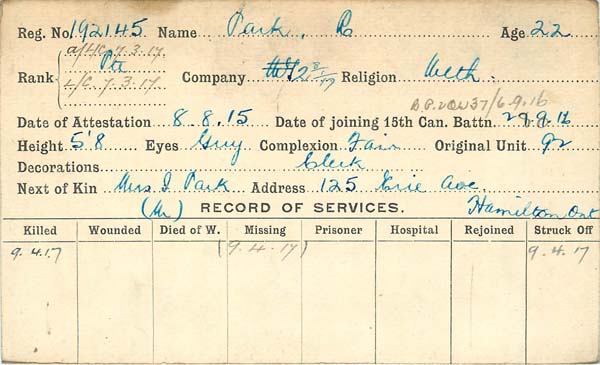 Reg. No 192145 Name Park, R Age 22
a/L/C. 7.3.17.
Rank Pte Company No 2 Religion Meth.
L/C. 7.3.17.
B.P.2 Ow37/6.9.16
Date of Attestation 8.8.15 Date of joining 15th Can. Battn. 29.9.16
Height 5'8 Eyes Grey Complexion Fair Original Unit 92
Decorations Clerk
Next of Kin Mrs J. Park Address 125 Erie Ave
(M) RECORD OF SERVICES. Hamilton Ont
Killed Wounded Died of W. Missing Prisoner Hospital Rejoined Struck Off
9.4.17 (9.4.17) 9.4.17